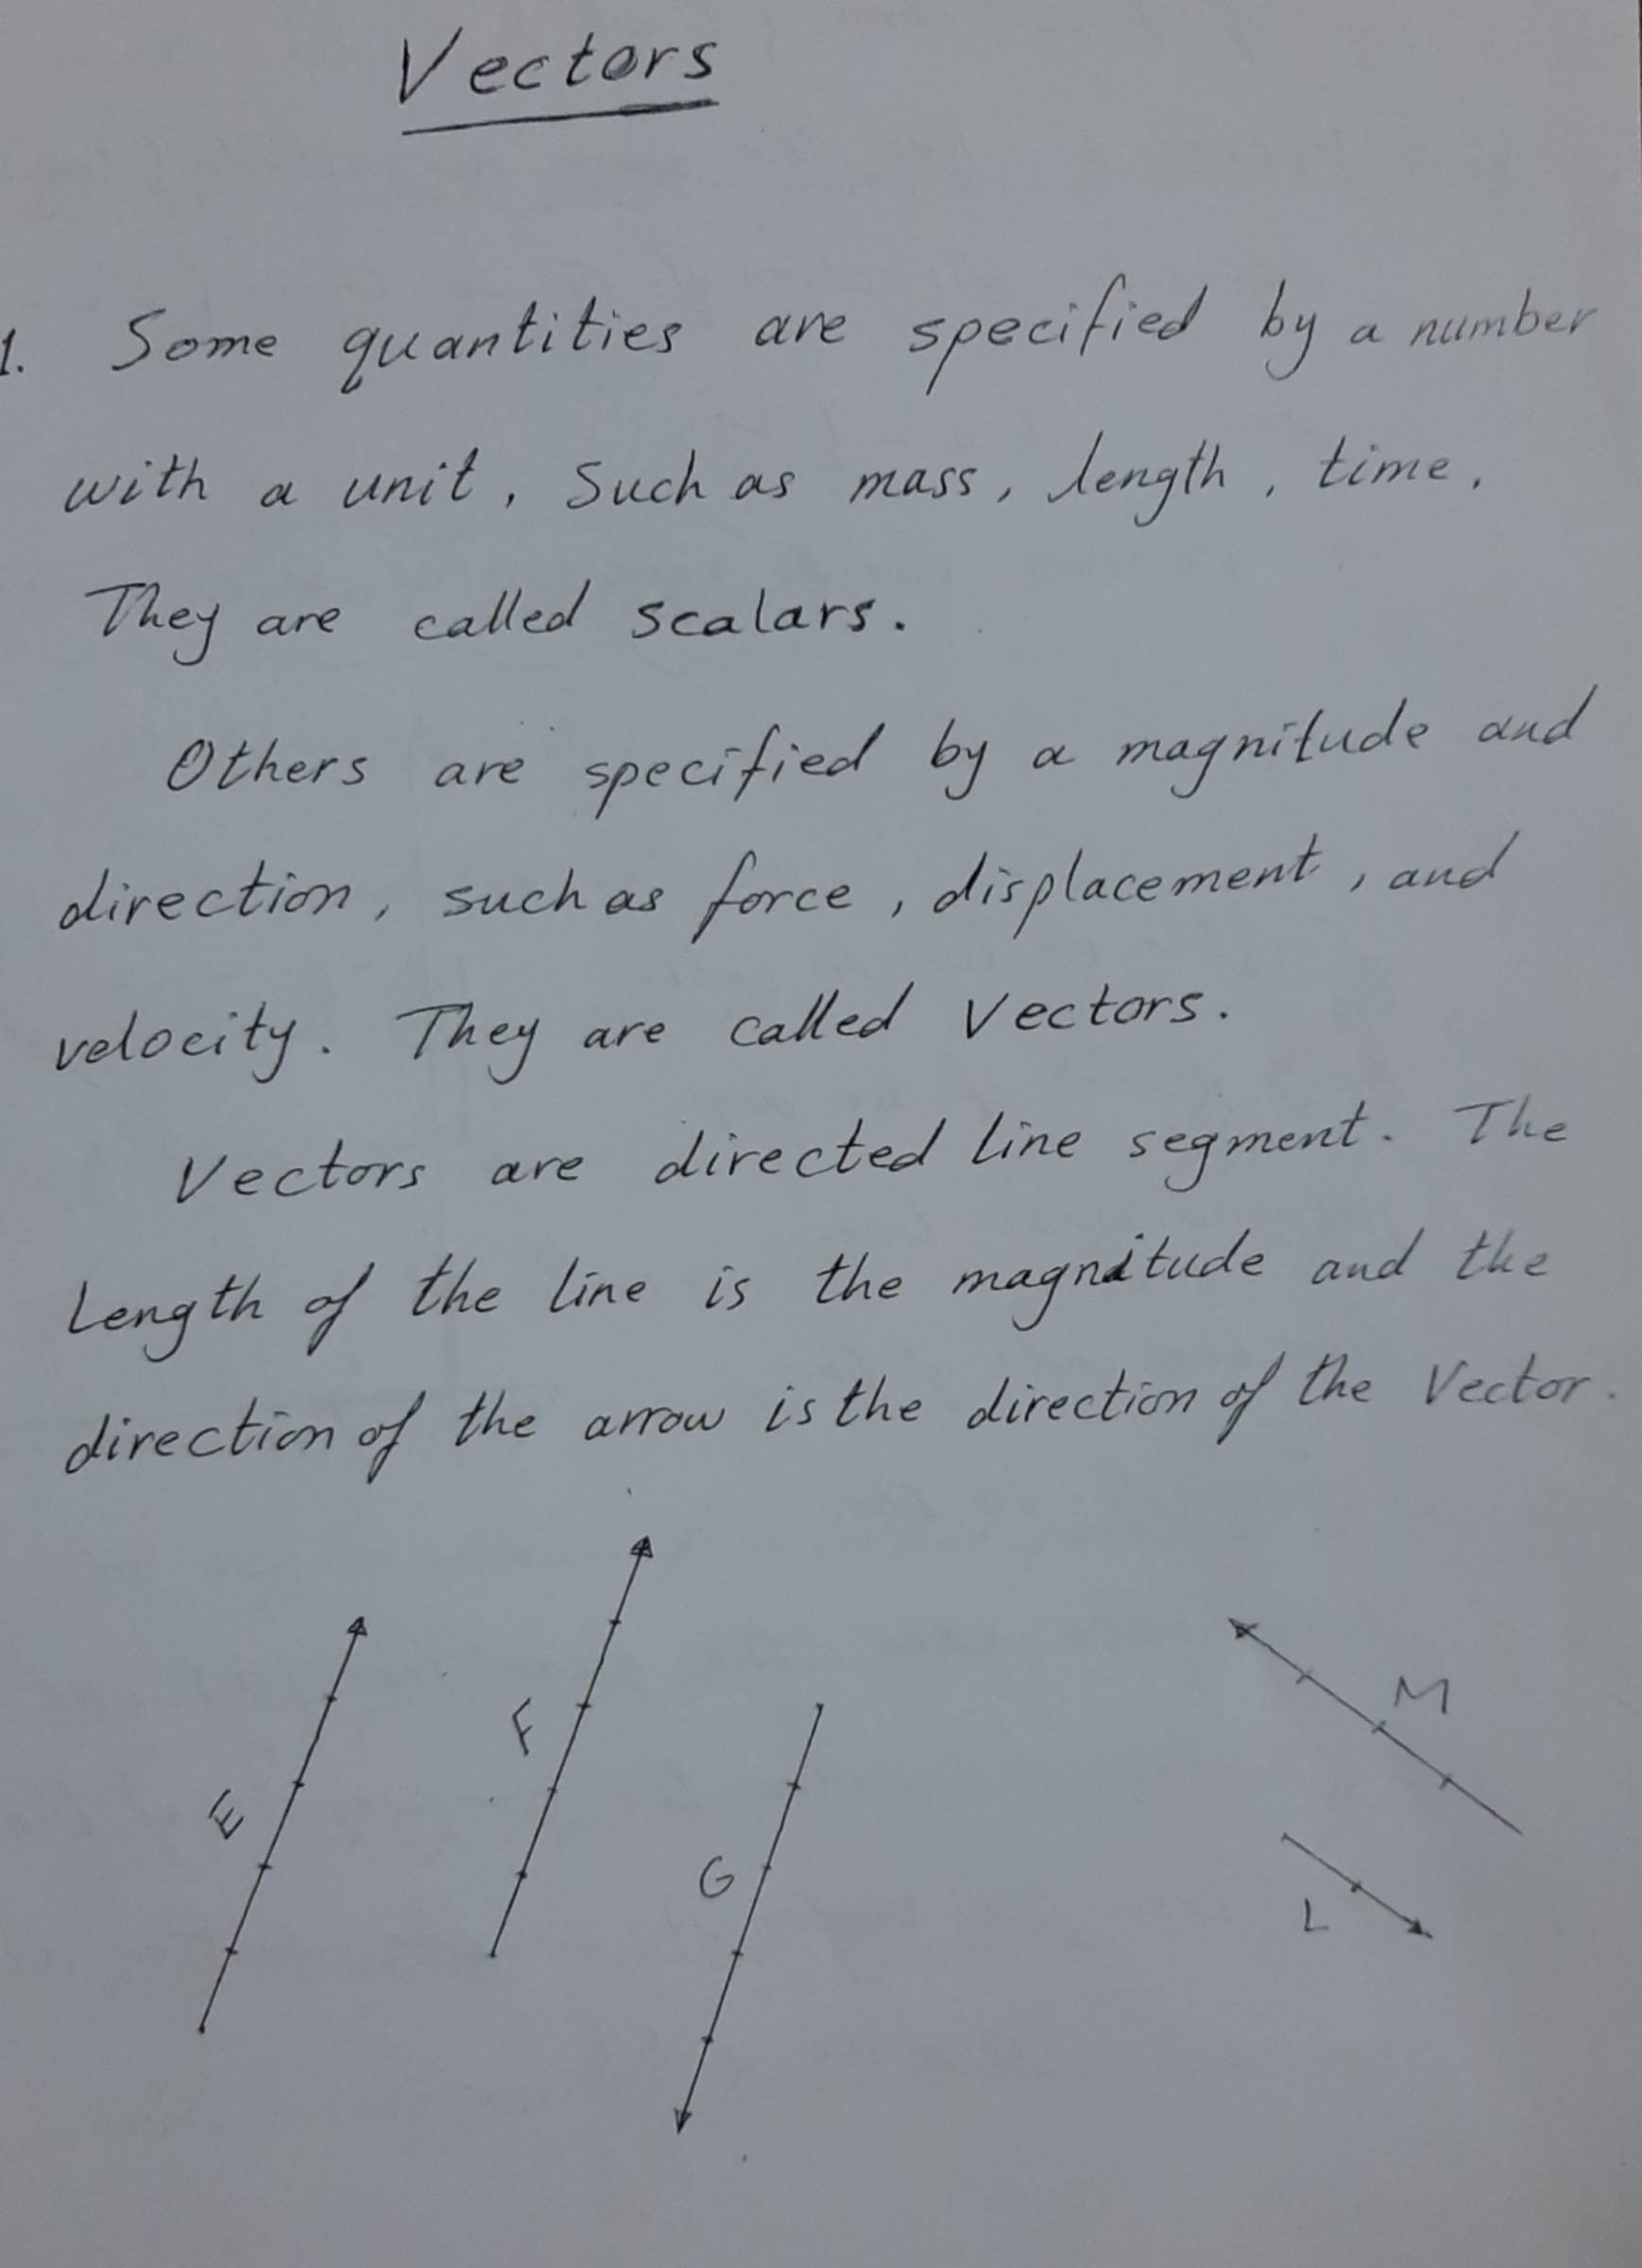 Vectors
1. Some quantities are specified by a number
with a unit, Such as mass, length, time.
They are called scalars.
Others are specified by a magnitude and
direction, such as force, displacement, and
velocity. They are called Vectors.
Vectors are directed line segment. The
Length of the line is the magnitude and the
direction of the arrow is the direction of the Vector.
E
F
G
M
L